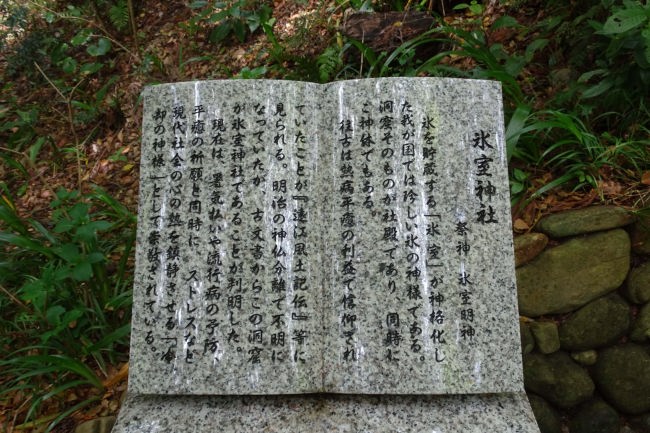 氷室神社
祭神 氷室明神
氷を貯蔵する「氷室」が神格化し
た我が国では珍しい氷の神様である。
洞窟そのものが社殿であり、同時に
ご神体でもある。
往古は熱病平癒の利益で信仰され
ていたことが『遠江風土記伝』等に
見られる。明治の神仏分離で不明に
なっていたが、古文書からこの洞窟
が氷室神社であることが判明した。
現在は、暑気払いや流行病の予防、
平癒の祈願と同時に、ストレスなど
現代社会の心の熱を鎮静させる「冷
却の神様」として崇拝されている。